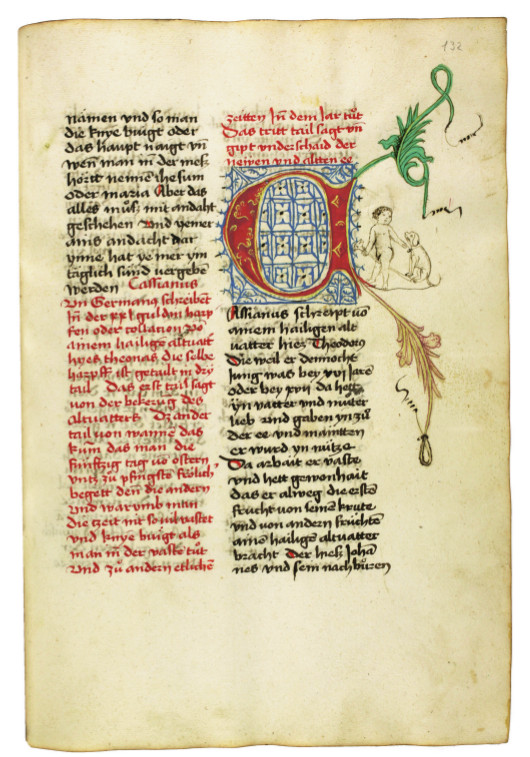 132
namen vnd so man
die knye büigt oder
das haupt naigt vn̄
wen̄ man in der meß
hörtt nemen ihesum
oder maria Aber das
alles můß mit andaht
geschehen Vnd yemer
anis andacht dar
ynne hat ye mer ym
täglich sünd vergebē
werden Cassianus
Vn Germanꝰ schreibēt
In der
fen oder collation vō
ainem hailigē altuatt
hyes theonas die selbe
härpff ist getailt in dry
tail Das erst tail sagt
von der bekerūg des
altuatters Dz ander
tail von wannē das
kum das man die
funftzig tag vō ostern
vntz zu pfingstē frölich
begett den die andern
vnd warvmb man
die zeit mit so vil vastet
vnd knye büigt als
man in der vastē tůt
Vnd zů andern etlichē
zeitten Jn dem Jar tůt
Das tritt tail sagt vn̄
gipt vnderschaid der
neiwen vnd altten ee
CAssianus schreipt vō
ainem hailigen alt
vatter hies Theodoꝰ
Die weil er dennocht
Jung was bey xvj Jarē
oder bey xvij da hettē
yn vatter vnd muter
lieb vnd gaben yn zů
der ee vnd maintten
er wurd yn nütze
Da arbait er vaste
vnd hett gewonhait
das er alweg die erstē
frucht von seinē krute
vnd von andern früchtē
ainē hailigē altuatter
bracht Der hieß Johā
nes vnd sein nachbůren